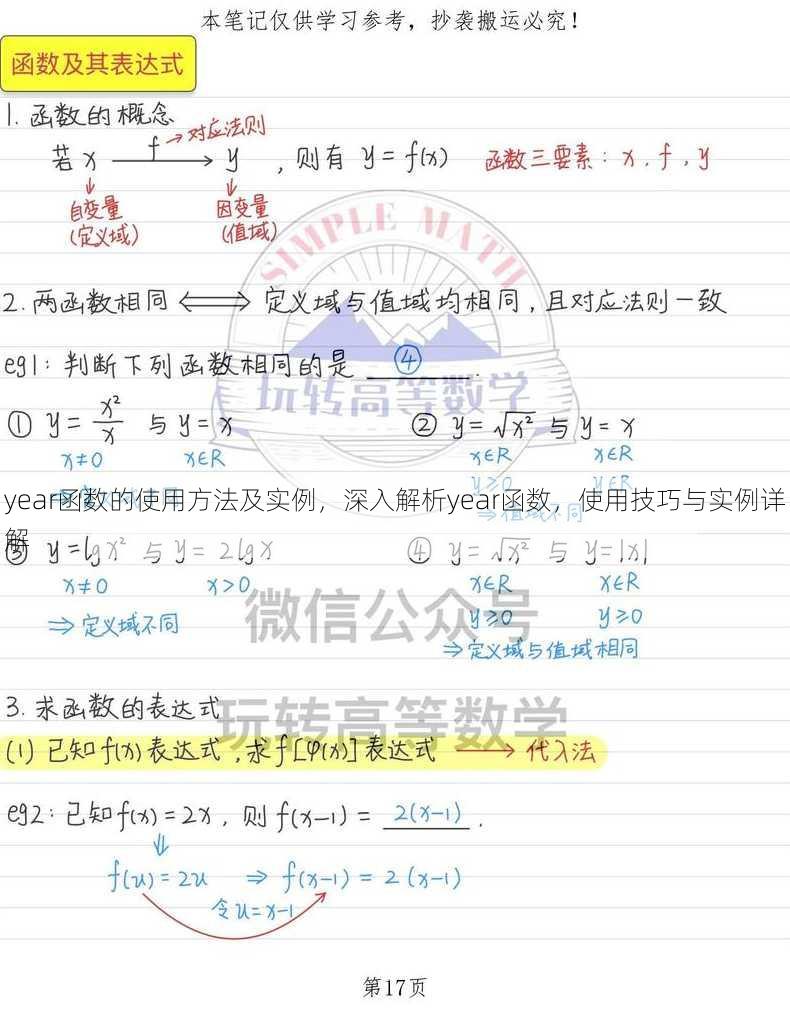 本笔记仅供学习参考，抄袭搬运必究！
函数及其表达式
1. 函数的概念
若 x —f→ y ，则有 y = f(x) 函数三要素：x，f，y
→对应法则
自变量 因变量
(定义域) (值域)
SIMPLE MATH
2. 两函数相同 ⟺ 定义域与值域均相同，且对应法则一致
eg1：判断下列函数相同的是 ④ .
玩转高等数学
① y = x²/x 与 y = x ② y = √x² 与 y = x
x≠0 x∈R x∈R x∈R
y≥0 y∈R
year函数的使用方法及实例，深入解析year函数，使用技巧与实例详解
⇒值域不同
③ y = lgx² 与 y = 2lgx ④ y = √x² 与 y = |x|
x≠0 x>0 x∈R x∈R
⇒定义域不同 y≥0 y≥0
微信公众号
⇒定义域与值域相同
3. 求函数的表达式
玩转高等数学
(1) 已知f(x)表达式，求f[φ(x)]表达式 → 代入法
eg2：已知f(x)=2x，则f(x-1) = 2(x-1) .
f(u)=2u ⇒ f(x-1) = 2(x-1)
令u=x-1
第17页